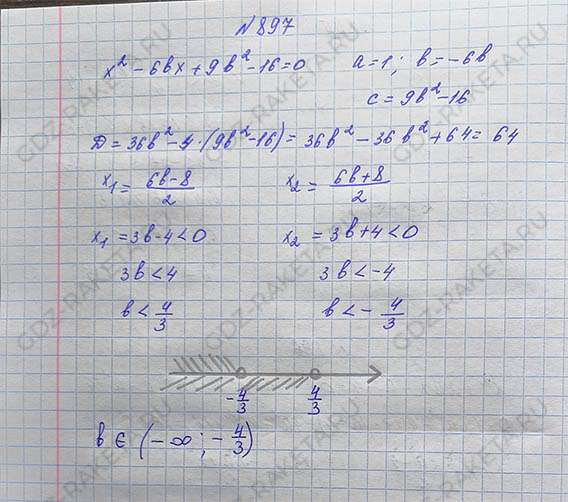 №897
x² - 6bx + 9b² - 16 = 0 a = 1; b = -6b
c = 9b² - 16
D = 36b² - 4·(9b² - 16) = 36b² - 36b² + 64 = 64
x₁ = (6b - 8)/2 x₂ = (6b + 8)/2
x₁ = 3b - 4 < 0 x₂ = 3b + 4 < 0
3b < 4 3b < -4
b < 4/3 b < - 4/3
-4/3 4/3
b ∈ (-∞; -4/3)
GDZ-RAKETA.RU